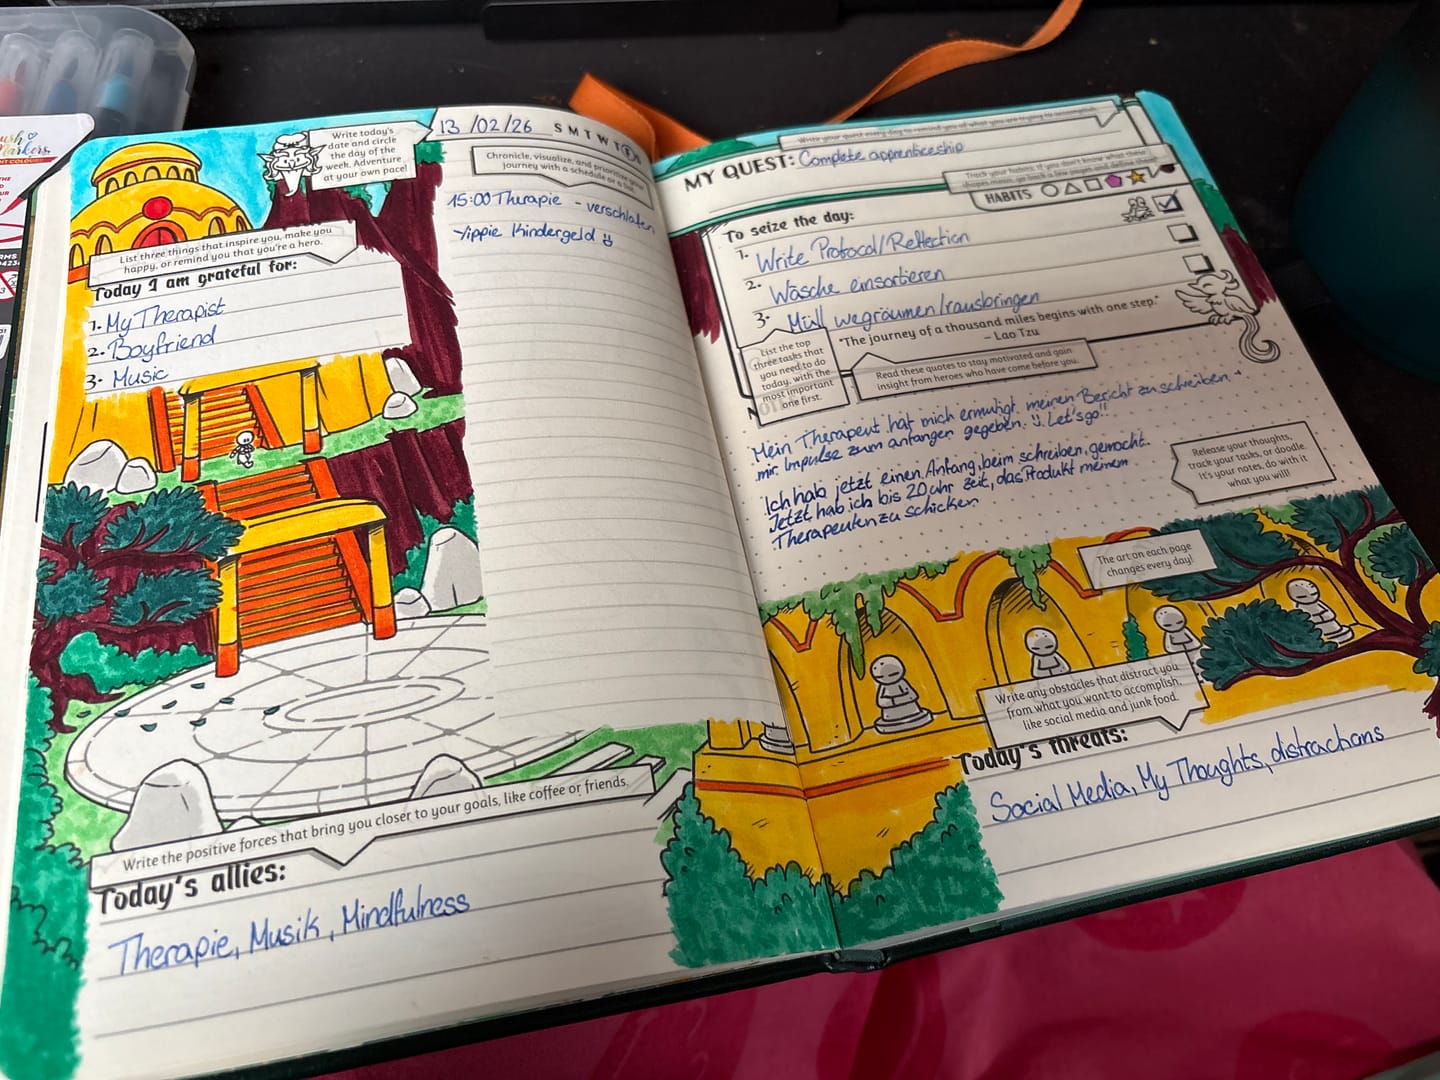 Write today's
date and circle
the day of the
week. Adventure
at your own pace!
13 /02/26 S M T W T F S
Chronicle, visualize, and prioritize your
journey with a schedule or a list.
15:00 Therapie - verschlafen
Yippie Kindergeld
List three things that inspire you, make you
happy, or remind you that you're a hero.
Today I am grateful for:
1. My Therapist
2. Boyfriend
3. Music
Write the positive forces that bring you closer to your goals, like coffee or friends.
Today's allies:
Therapie, Musik, Mindfulness
Write your quest every day to remind you of what you are trying to accomplish.
MY QUEST: Complete apprenticeship
Track your habits. If you don't know what these
shapes mean, go back a few pages and define them!
HABITS
To seize the day:
1. Write Protocol/Reflection
2. Wäsche einsortieren
3. Müll wegräumen/rausbringen
"The journey of a thousand miles begins with one step."
– Lao Tzu
List the top
three tasks that
you need to do
today, with the
most important
one first.
Read these quotes to stay motivated and gain
insight from heroes who have come before you.
Mein Therapeut hat mich ermutigt, meinen Bericht zu schreiben. +
mir Impulse zum anfangen gegeben. Let'sgo!!
Ich hab jetzt einen Anfang beim schreiben gemacht.
Jetzt hab ich bis 20 uhr zeit, das Produkt meinem
Therapeuten zu schicken
Release your thoughts,
track your tasks, or doodle.
It's your notes, do with it
what you will!
The art on each page
changes every day!
Write any obstacles that distract you
from what you want to accomplish,
like social media and junk food.
Today's threats:
Social Media, My Thoughts, distractions